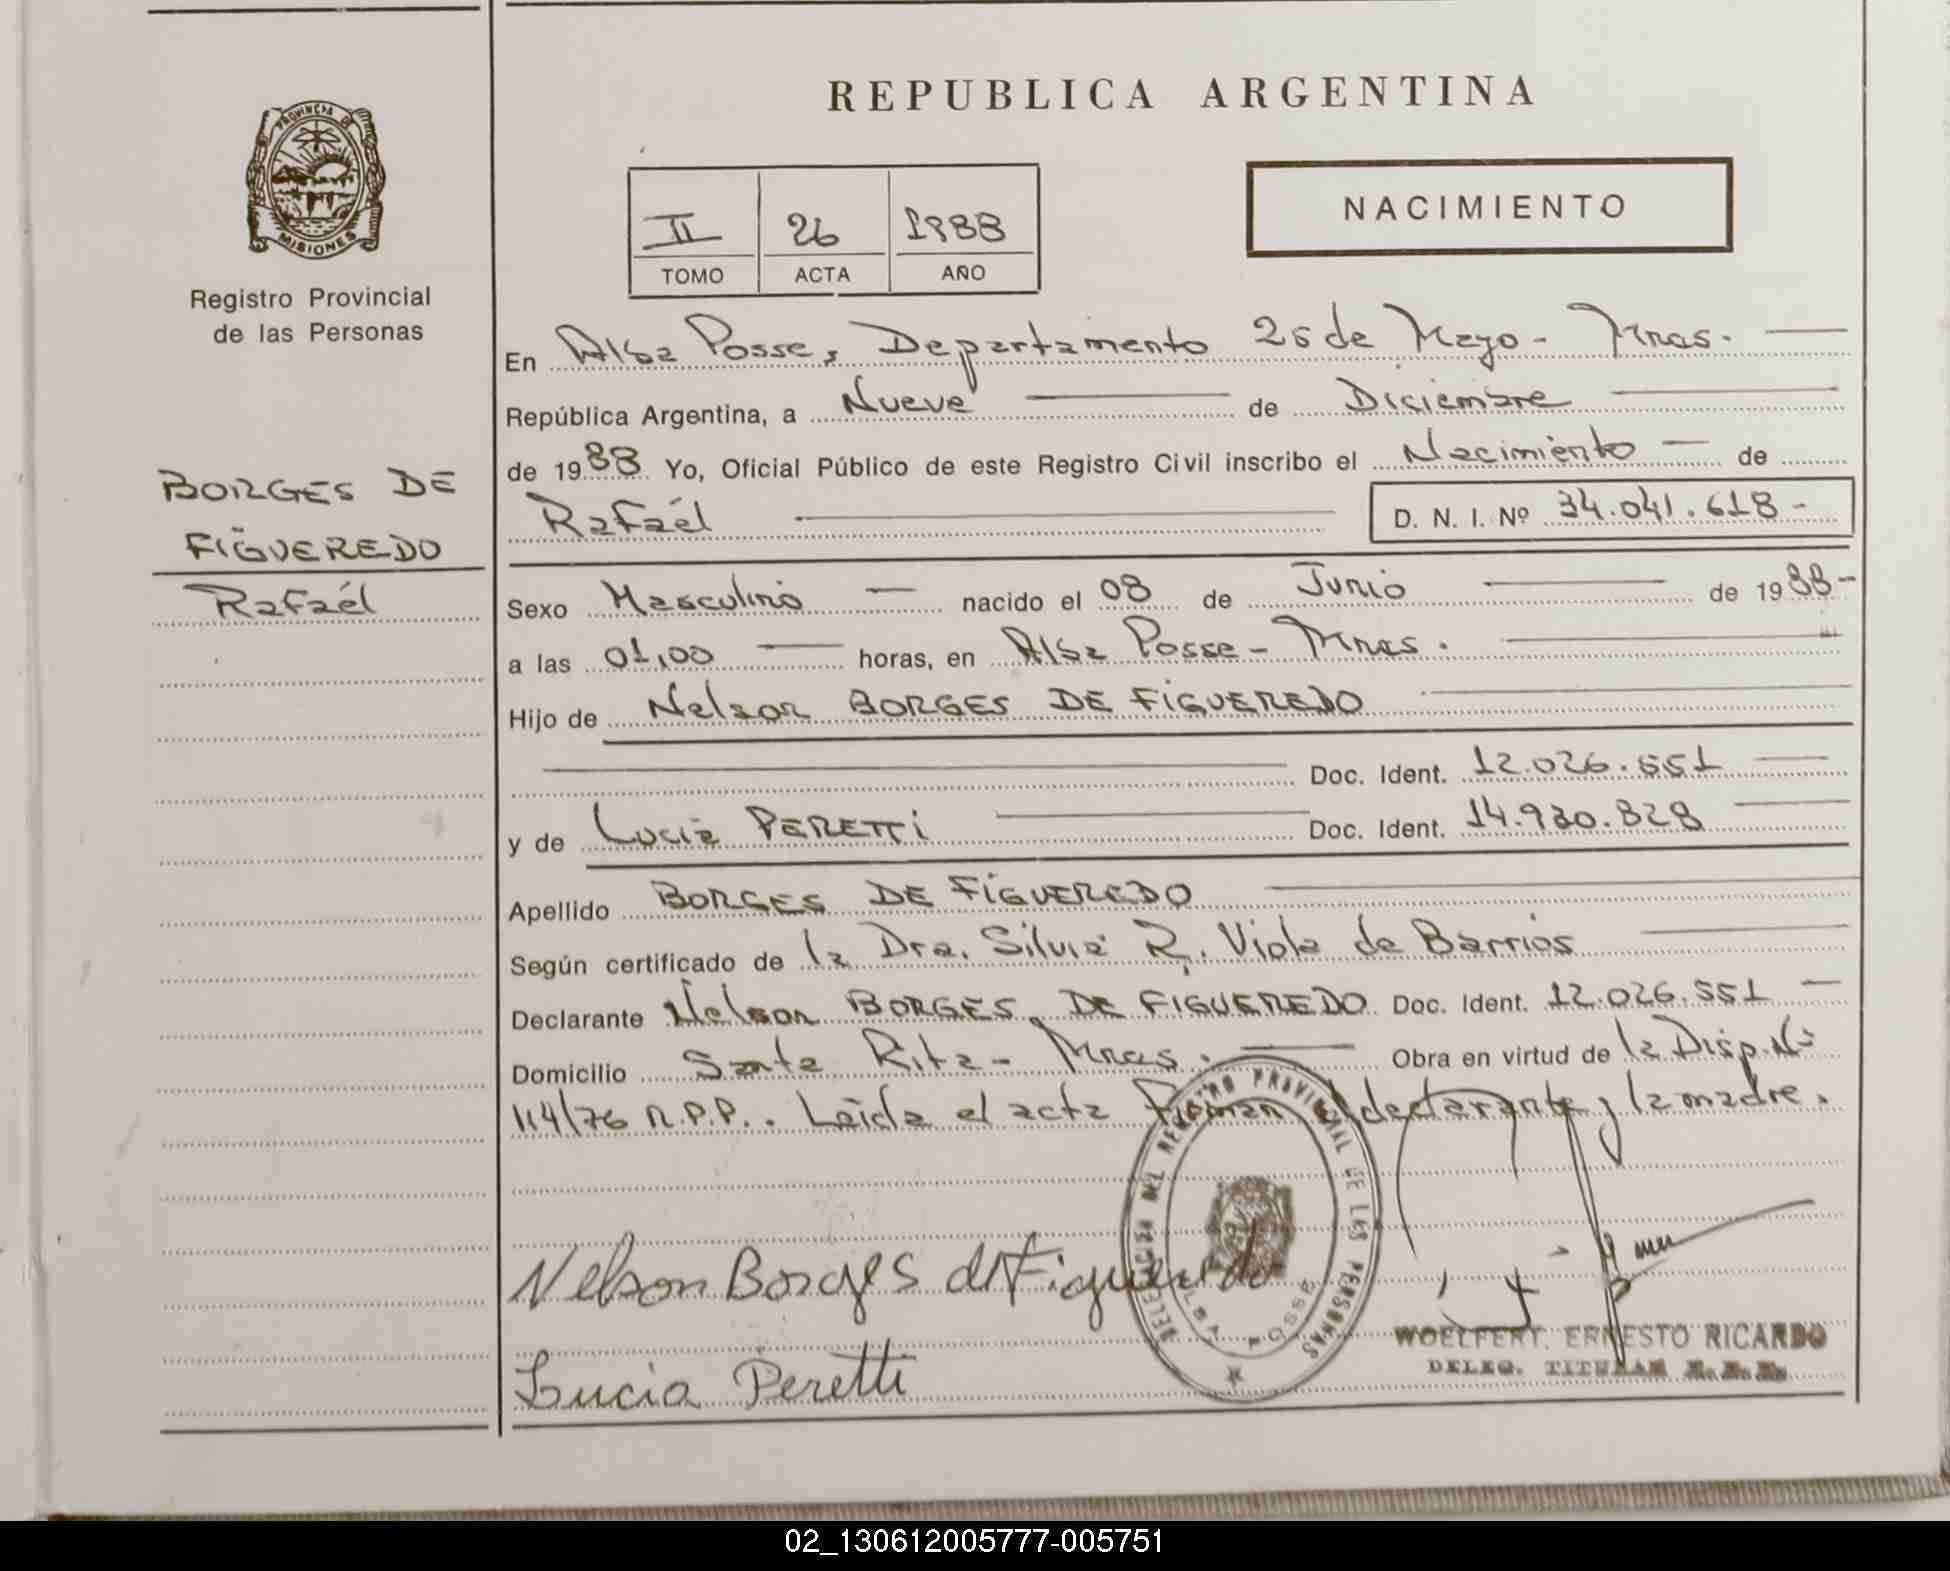 REPUBLICA ARGENTINA
PROVINCIA DE
MISIONES
Registro Provincial
de las Personas
II 26 1988
TOMO ACTA AÑO
NACIMIENTO
BORGES DE
FIGUEREDO
Rafaél
En Alba Posse, Departamento 25 de Mayo - Mnes.
República Argentina, a Nueve de Diciembre
de 1988 Yo, Oficial Público de este Registro Civil inscribo el Nacimiento de
Rafaél D. N. I. Nº 34.041.618-
Sexo Masculino nacido el 08 de Junio de 1988-
a las 01,00 horas, en Alba Posse - Mnes.
Hijo de Nelson BORGES DE FIGUEREDO
Doc. Ident. 12.026.551
y de Lucia PERETTI Doc. Ident. 14.930.828
Apellido BORGES DE FIGUEREDO
Según certificado de la Dra. Silvia R. Viola de Barrios
Declarante Nelson BORGES DE FIGUEREDO Doc. Ident. 12.026.551
Domicilio Santa Rita - Mnes. Obra en virtud de la Disp. Nº
114/76 R.P.P.. Leida el acta Firman el declarante y la madre.
REGISTRO PROVINCIAL DE LAS PERSONAS
ALBA POSSE
Nelson Borges de Figueredo
Lucia Peretti
WOELFERT, ERNESTO RICARDO
DELEG. TITULAR
02_130612005777-005751